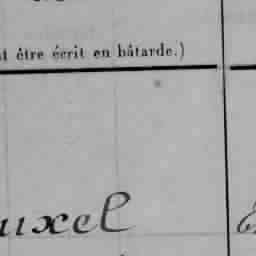 t être écrit en bâtarde.)
uxel